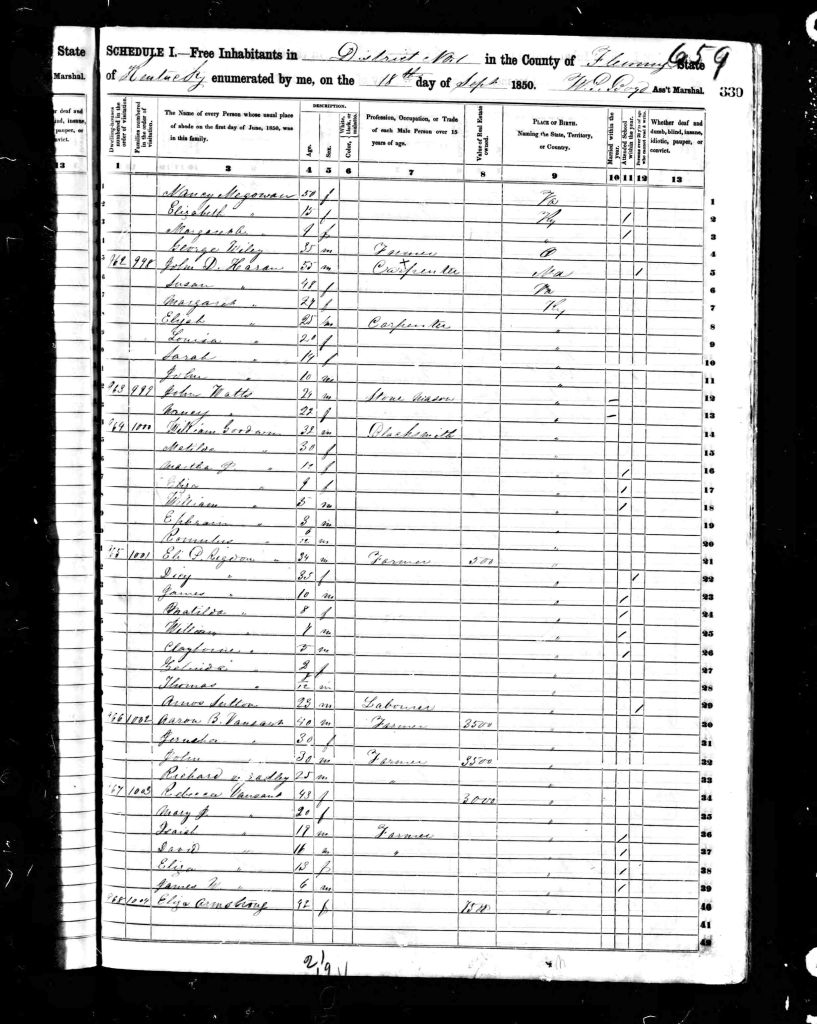 State
Marshal.
or deaf and
mb, insane,
pauper, or
nvict.
13
659
SCHEDULE I.—Free Inhabitants in District No 1 in the County of Fleming State
of Kentucky enumerated by me, on the 18th day of Sept 1850. Ass't Marshal. 330
Dwelling-houses numbered in the order of visitation.
Families numbered in the order of visitation.
The Name of every Person whose usual place of abode on the first day of June, 1850, was in this family.
DESCRIPTION.
Age.
Sex.
White, black, or mulatto.
Color,
Profession, Occupation, or Trade of each Male Person over 15 years of age.
Value of Real Estate owned.
PLACE OF BIRTH.
Naming the State, Territory, or Country.
Married within the year.
Attended School within the year.
Whether deaf and dumb, blind, insane, idiotic, pauper, or convict.
1 2 3 4 5 6 7 8 9 10 11 12 13
Nancy Megowan 50 f Va 1
Elizabeth " 13 f Ky / 2
Margaret " 9 f " / 3
George Wiley 35 m Farmer O 4
962 998 John D. Haran 55 m Carpenter Ma / 5
Susan " 48 f Va 6
Margaret " 27 f Ky 7
Elijah " 25 m Carpenter " 8
Louisa " 20 f " 9
Sarah " 14 f " 10
John " 10 m " 11
963 999 John Watts 24 m Stone Mason " 12
Nancy " 22 f " 13
964 1000 William Goodwin 33 m Blacksmith " 14
Matilda " 30 f " 15
Martha " 10 f " / 16
Eliza " 9 f " / 17
William " 5 m " / 18
Ephraim " 3 m " 19
Romulus " m " 20
965 1001 Eli D Rigdon " 34 m Farmer 500 " 21
Dicy " 35 f " / 22
James " 10 m " / 23
Matilda " 8 f " / 24
William " 7 m " / 25
Claytorne " 5 m " / 26
2 f " 27
Thomas " m " 28
Amos Sutton 23 m Labourer " / 29
966 1002 Aaron B. Vansant 40 m Farmer 3500 " 30
Jerusha " 30 f " 31
John " 30 m Farmer 3500 " 32
Richard 25 m " " 33
967 1003 Rebecca Vansant 43 f 3000 " 34
Mary J. " 20 f " 35
Isaiah " 18 m Farmer " / 36
David " 16 m " " / 37
Eliza " 13 f " / 38
James W " 6 m " / 39
968 1004 Eliza Armstrong 42 f " 40
41
42